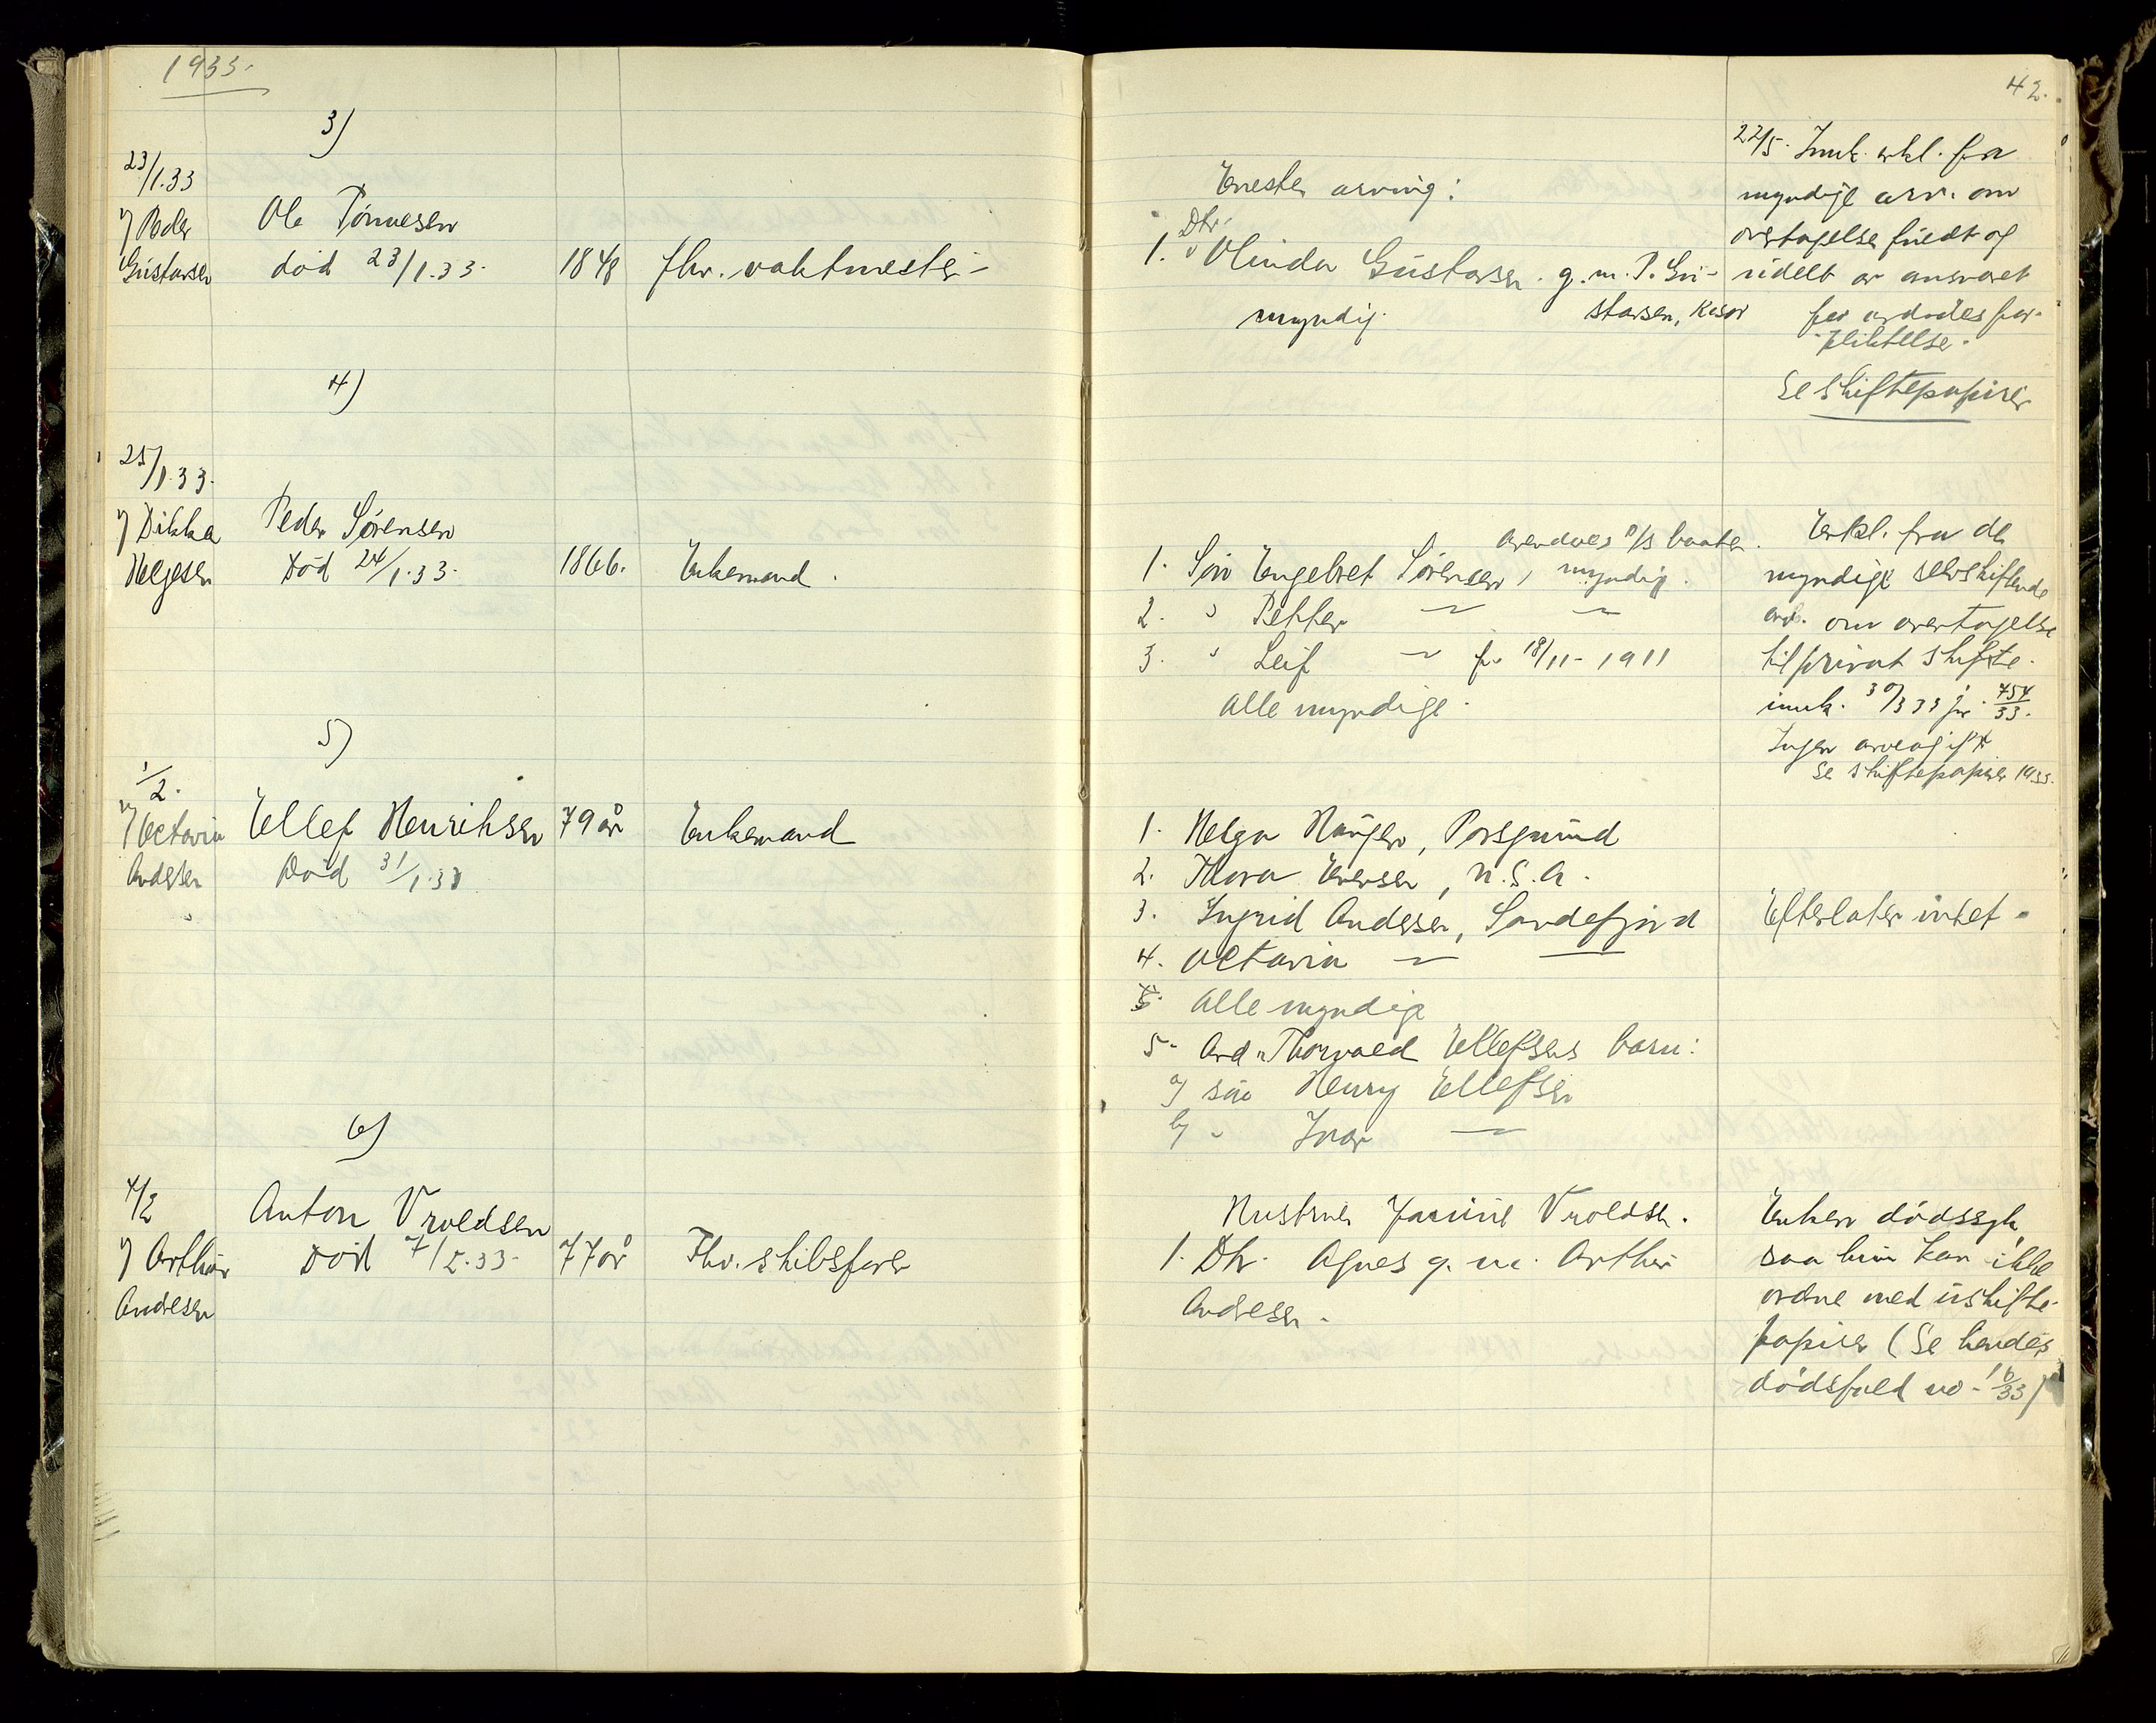 1933.
42.
3)
23/1.33
v/ Peder
Gustavsen
Ole Tønnesen
død 23/1.33.
1848
fhv. vaktmester
Eneste arving:
1. Dtr. Olinda Gustavsen. g. m. P. Gu-
stavsen,
myndig.
22/5. Innk. erkl. fra
myndige arv. om
overtagelse fuldt og
udelt av ansvaret
for avdødes for-
pliktelse.
Se skiftepapirer
4)
25/1.33.
v/ Dikka
Helgesen
Peder Sørensen
Død 24/1.33.
1866.
Enkemand.
Arendals D/S baater.
1. Søn Engebret Sørensen, myndig.
2. " Petter — —
3. " Leif — f. 18/11-1911
Alle myndige.
Erkl. fra de
myndige selvskiftende
arv. om overtagelse
til privat skifte.
innk. 30/3 33 jr. 754/33.
Ingen arveavgift
Se skiftepapirer 1933.
5)
1/2.
v/ Octavia
Andersen
Ellef Henriksen
Død 31/1.33
79 år
Enkemand
1. Helga Haugen, Porsgrund
2. Thora Evensen, U.S.A.
3. Ingrid Andersen, Sandefjord
4. Octavia — —
5. Alle myndige
5. Avd. Thorvald Ellefsens barn:
a/ søn Henry Ellefsen
b/ " Ivar —
Efterlater intet.
6)
4/2
v/ Arthur
Andresen
Anton Vroldsen
Død 4/2.33.
77 år
Fhv. skibsfører
Hustru Janine Vroldsen.
1. Dtr. Agnes g. m. Arthur
Andresen.
Enken dødssyk,
saa hun kan ikke
ordne med uskifte-
papirer (Se hendes
dødsfald no. 16/33)